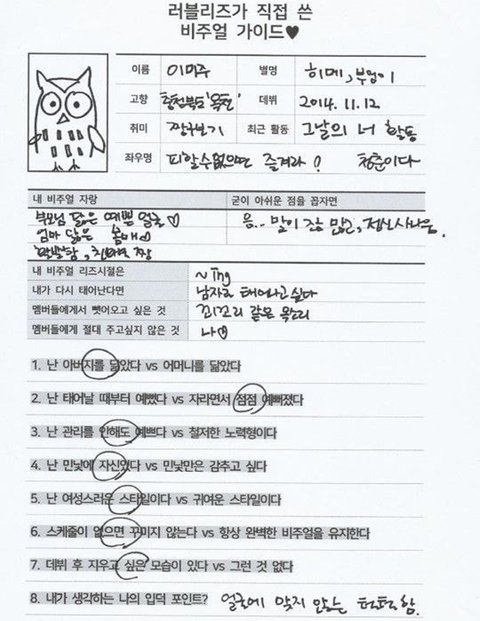 러블리즈가 직접 쓴
비주얼 가이드♥
이름 이미주 별명 히메, 부엉이
고향 충청북도 '옥천' 데뷔 2014. 11. 12
취미 짱구보기 최근 활동 그날의 너 활동
좌우명 피할수없으면 즐겨라! 청춘이다
내 비주얼 자랑 굳이 아쉬운 점을 꼽자면
부모님 닮은 예쁜 얼굴♡ 음.. 말이 장 많고, 정신사나움.
엄마 닮은 몸매♡
짱
내 비주얼 리즈시절은 ~ing
내가 다시 태어난다면 남자로 태어나고싶다
멤버들에게서 뺏어오고 싶은 것 꾀꼬리 같은 목소리
멤버들에게 절대 주고싶지 않은 것 나♡
1. 난 아버지를 닮았다 vs 어머니를 닮았다
2. 난 태어날 때부터 예뻤다 vs 자라면서 점점 예뻐졌다
3. 난 관리를 안해도 예쁘다 vs 철저한 노력형이다
4. 난 민낯에 자신있다 vs 민낯만은 감추고 싶다
5. 난 여성스러운 스타일이다 vs 귀여운 스타일이다
6. 스케줄이 없으면 꾸미지 않는다 vs 항상 완벽한 비주얼을 유지한다
7. 데뷔 후 지우고 싶은 모습이 있다 vs 그런 것 없다
8. 내가 생각하는 나의 입덕 포인트? 얼굴에 맞지 않는 털털함.